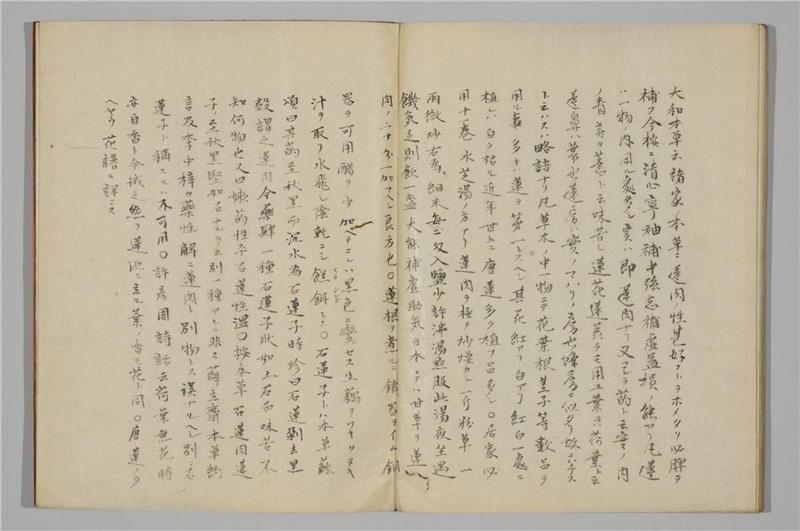 大和本草云諸家本草ニ蓮肉性甚好コトヲホメタリ必脾ヲ
補フ今按ニ清心寧神補中強志補虚益損ノ能アリ凡蓮
ハ一物ノ内用ル處多シ實ハ即蓮肉ナリ又コヲ菂ト云實ノ内
ノ青芽ヲ薏ト云味苦シ蓮花蓮蘂ヲモ用ユ葉ヲ荷葉ト云
蓮鼻ハ葉ノ蓮房ハ實ノテハリノ房也蜂房ニ似タリ故ニハチス
ト云ハスハ略語ナリ凡草木ノ中一物ニテ花葉根莖子等數品ヲ
用ル事多キハ蓮ヲ第一トスヘシ其花紅アリ白アリ紅白一處ニ
植レハ白ク枯ル近年世上ニ唐蓮多ク植フ品多シ〇居家必
用十巻水芝湯ノ方アリ蓮肉ヲ極ク炒燥カシ一斤粉草一
兩微炒右為細末毎二戔入鹽少許沸湯點服此湯夜坐過
饑氣乏則飲一盞大能補虚助氣日本ニテハ甘草ヲ蓮
肉ノ二十分一加フヘシ良方也〇蓮根ヲ煮ルニ鐵器ヲイム銅
器ヲ可用醋ヲ少加ヘテニレハ黒色ニ變セス生藕ヲツキクタキ
汁ヲ取リ水飛シ陰乾ニシ餻餅トス〇石蓮子トハ本草蘇
頌曰其菂至秋黒而沉水為石蓮子時珍曰石蓮剝去黒
殻謂之蓮肉今藥肆一種石蓮子状如土石而味苦不
知何物也又曰嫩菂性平石蓮性溫〇按本草石蓮肉蓮
子ノ至秋黒堅如石ナルヲ云別一種アルニ非ス薛立齋本草約
言及李中梓カ藥性解ニ蓮肉ト別物トス誤ナルヘシ別ニ石
蓮子ト稱スルハ不可用〇許彦周詩話云荷葉無花時
亦自香ト今試之然リ蓮池ニ立ル葉ノ香モ花ト同〇唐蓮ノ
ヘヤウ花譜ニ詳ニス